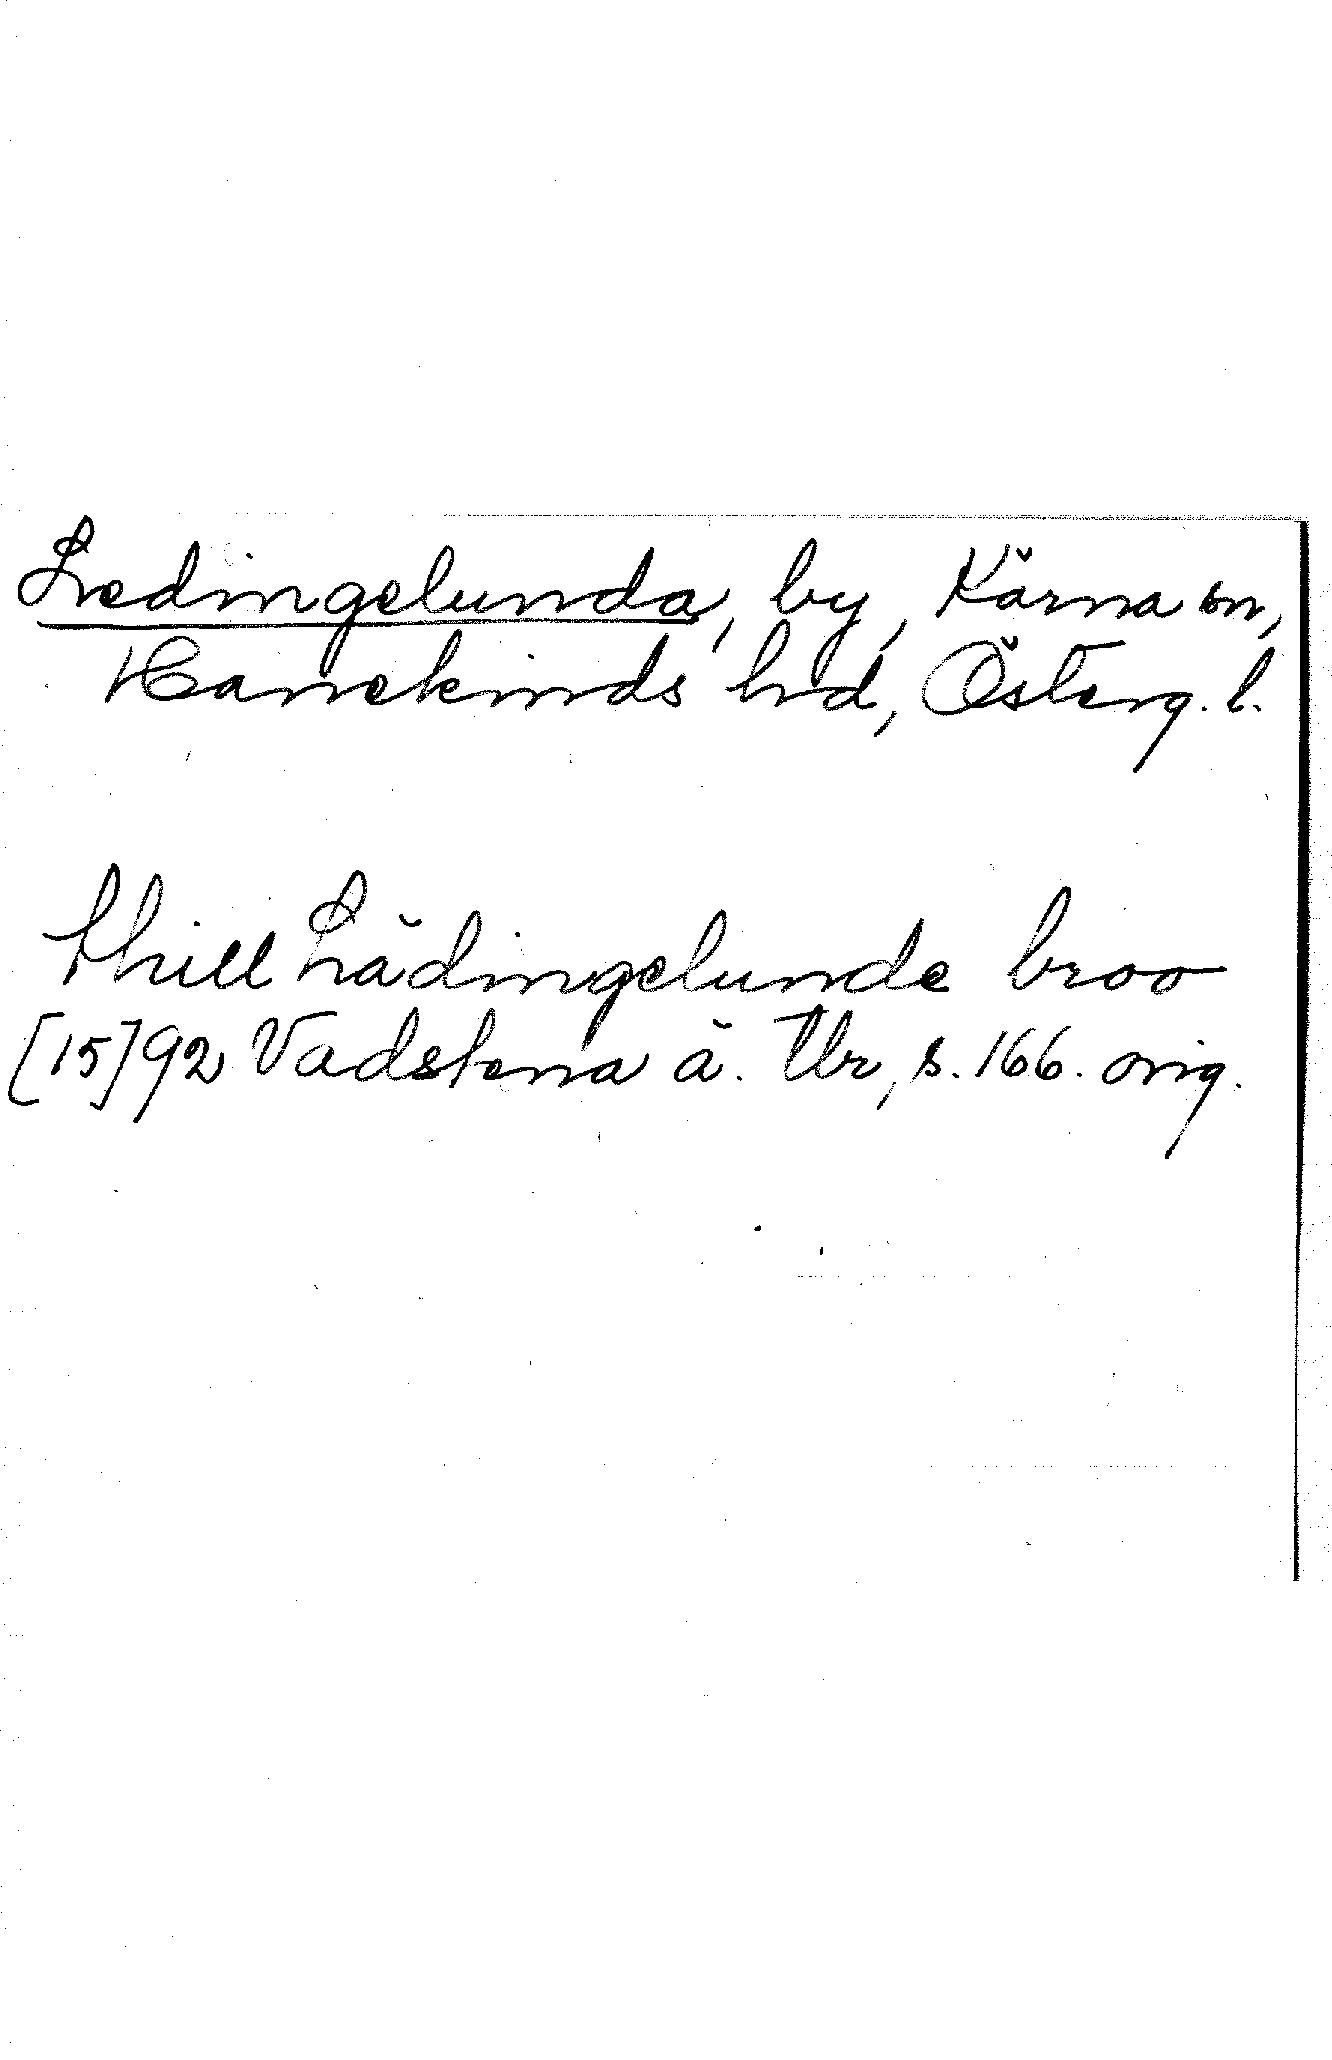 Ledingelunda, by, Kärna sn,
Hanekinds hd, Österg. l.
thill Lädingelunde broo
[15]92 Vadstena ä. Tbr, s. 166. orig.